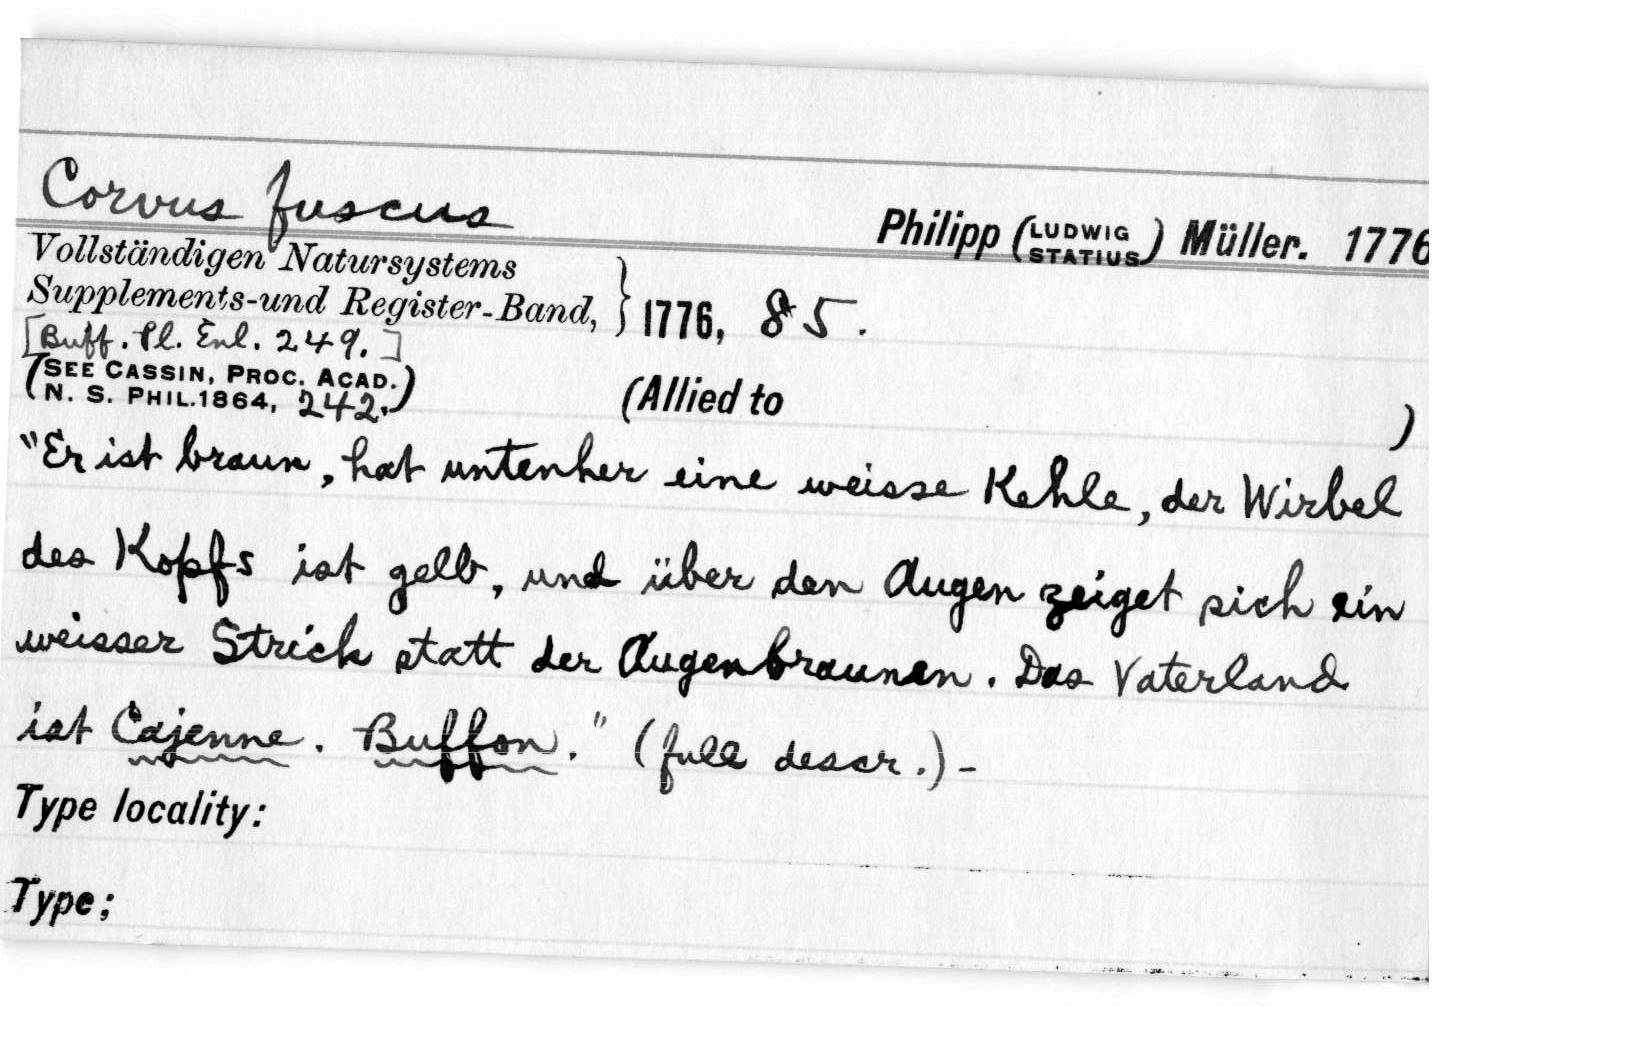 Corvus fuscus
Philipp (LUDWIG STATIUS) Müller. 1776
Vollständigen Natursystems
Supplements-und Register-Band, } 1776, 85.
[Buff. Pl. Enl. 249.]
(SEE CASSIN, PROC. ACAD.
N. S. PHIL. 1864, 242.)
(Allied to )
"Er ist braun, hat untenher eine weisse Kehle, der Wirbel
des Kopfs ist gelb, und über den Augen zeiget sich ein
weisser Strich statt der Augenbraunen. Das Vaterland
ist Cajenne. Buffon." (full descr.) -
Type locality:
Type;